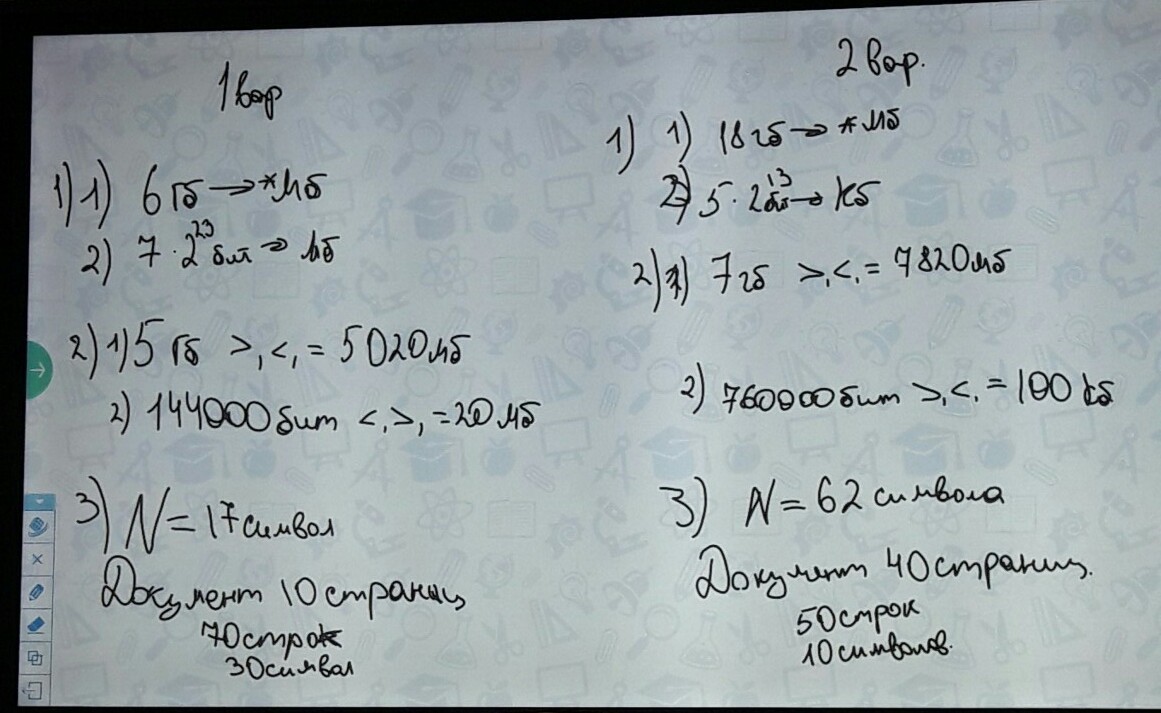 1 вар
1) 1) 6 Гб → *Мб
2) 7 · 2²³ бит → Мб
2) 1) 5 Гб >, <, = 5020 мб
2) 144000 бит <, >, = 20 мб
3) N = 17 символ
Документ 10 страниц
70 строк
30 символ
2 вар.
1) 1) 18 гб → *Мб
2) 5 · 2¹³ бит → Кб
2) 1) 7 гб >, <, = 7820 мб
2) 760000 бит >, <, = 100 кб
3) N = 62 символа
Документ 40 страниц.
50 строк
10 символов.